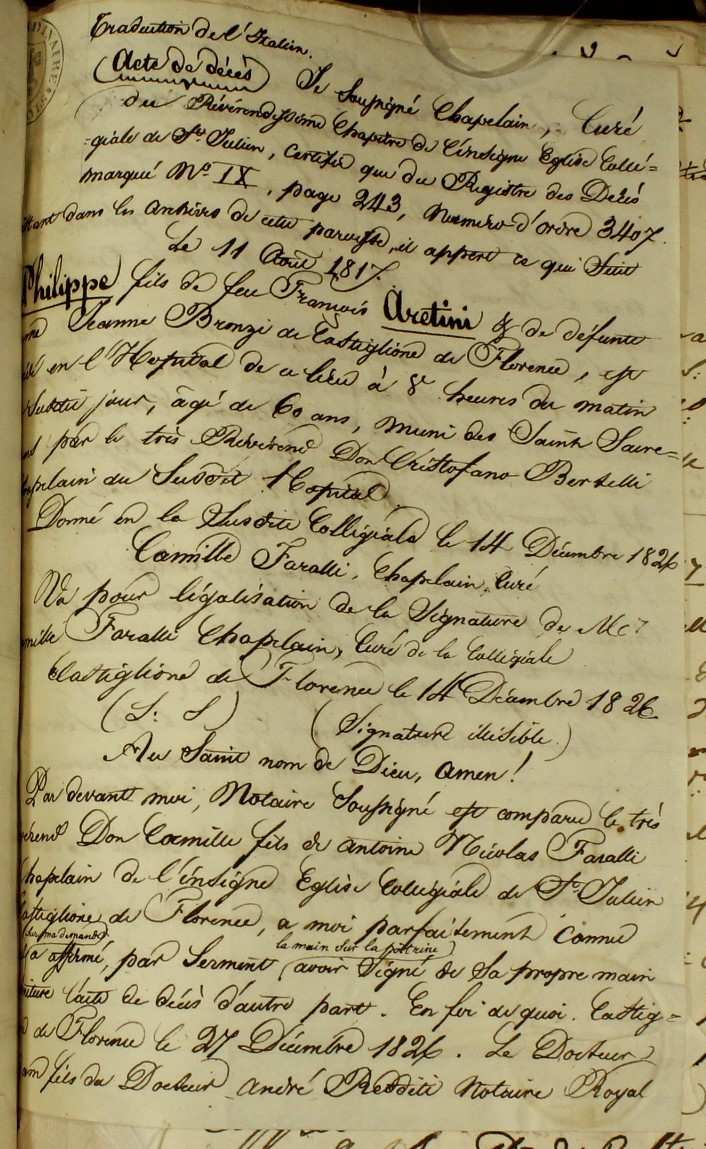 Traduction de l'Italien.
(Acte de décès) Je Soussigné Chapelain, Curé
du Révérendissime Chapitre de l'insigne Eglise Collé=
=giale de St. Julien, certifie que du Registre des Décès
marqué No. IX, page 243, Numéro d'ordre 3407.
dans les archives de cette paroisse, il appert ce qui suit
Le 11 Août 1817.
Philippe fils de feu François Aretini & de défunte
Jeanne Bronzi de Castiglione de Florence, est
en l'Hopital de ce lieu à 8 heures du matin
Susdit jour, âgé de 60 ans, muni des Saints Sacre=
par le très Révérend Don Cristofano Bertelli
du Susdit Hopital
Donné en la Susdite Collégiale le 14 Décembre 1826
Camille Faralli, Chapelain, Curé
Vu pour légalisation de la Signature de Mr
Faralli Chapelain, Curé de la Collégiale
Castiglione de Florence le 14 Décembre 1826
(L. S) (Signature illisible.)
Au Saint nom de Dieu, amen!
Par devant moi, Notaire Soussigné est comparu le très
Don Camille fils de Antoine Nicolas Faralli
Chapelain de l'insigne Eglise Collégiale de St. Julien
Castiglione de Florence, a moi parfaitement connu
sur ma demande la main sur la poitrine
a affirmé, par Serment avoir Signé de Sa propre main
l'acte de décès d'autre part. En foi de quoi. Castig=
de Florence le 27 Décembre 1826. Le Docteur
fils du Docteur André Redditi Notaire Royal